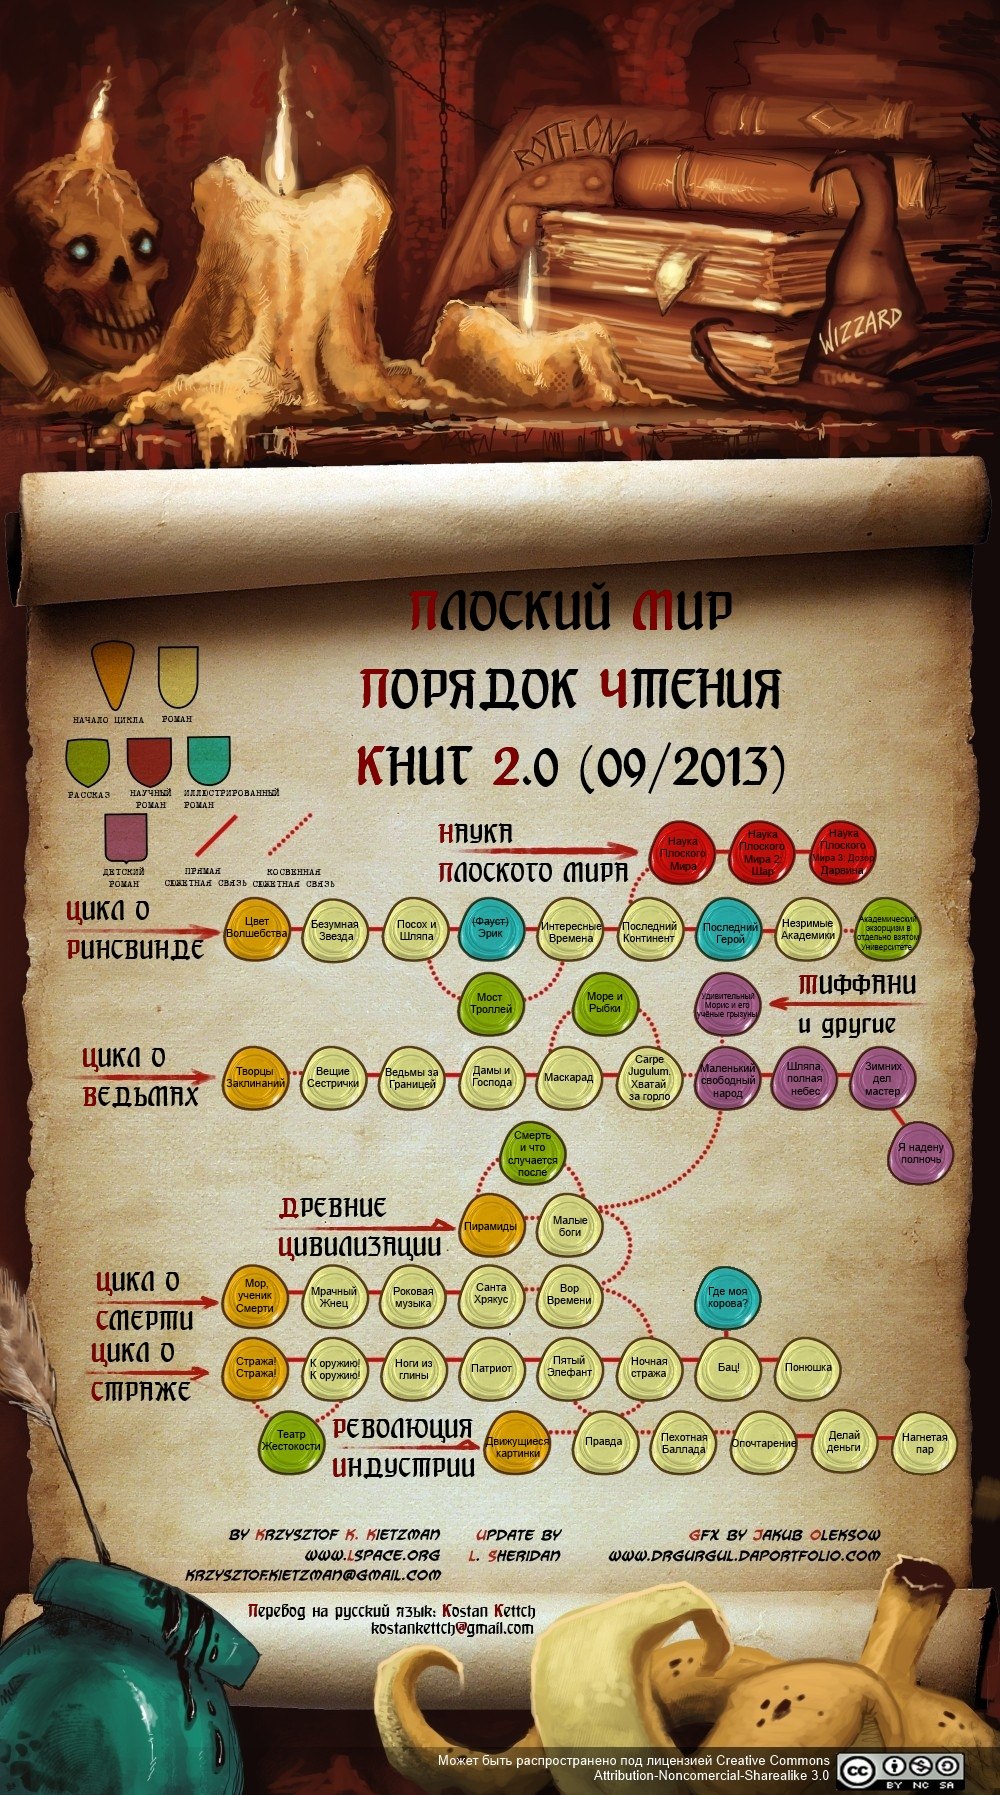 WIZZARD
Плоский Мир
Порядок Чтения
Книг 2.0 (09/2013)
НАЧАЛО ЦИКЛА
РОМАН
РАССКАЗ
НАУЧНЫЙ
РОМАН
ИЛЛЮСТРИРОВАННЫЙ
РОМАН
ДЕТСКИЙ
РОМАН
ПРЯМАЯ
СЮЖЕТНАЯ СВЯЗЬ
КОСВЕННАЯ
СЮЖЕТНАЯ СВЯЗЬ
Наука
Плоского Мира
Наука
Плоского
Мира
Наука
Плоского
Мира 2:
Шар
Наука
Плоского
Мира 3: Дозор
Дарвина
Цикл о
Ринсвинде
Цвет
Волшебства
Безумная
Звезда
Посох и
Шляпа
(Фауст)
Эрик
Интересные
Времена
Последний
Континент
Последний
Герой
Незримые
Академики
Академический
экзорцизм в
отдельно взятом
Университете
Мост
Троллей
Море и
Рыбки
Удивительный
Морис и его
учёные грызуны
Тиффани
и другие
Цикл о
Ведьмах
Творцы
Заклинаний
Вещие
Сестрички
Ведьмы за
Границей
Дамы и
Господа
Маскарад
Carpe
Jugulum.
Хватай
за горло
Маленький
свободный
народ
Шляпа,
полная
небес
Зимних
дел
мастер
Я надену
полночь
Смерть
и что
случается
после
Древние
Цивилизации
Пирамиды
Малые
боги
Цикл о
Смерти
Мор,
ученик
Смерти
Мрачный
Жнец
Роковая
музыка
Санта
Хрякус
Вор
Времени
Где моя
корова?
Цикл о
Страже
Стража!
Стража!
К оружию!
К оружию!
Ноги из
глины
Патриот
Пятый
Элефант
Ночная
стража
Бац!
Понюшка
Театр
Жестокости
Революция
Индустрии
Движущиеся
картинки
Правда
Пехотная
Баллада
Опочтарение
Делай
деньги
Нагнетая
пар
BY KRZYSZTOF K. KIETZMAN
WWW.LSPACE.ORG
KRZYSZTOF.KIETZMAN@GMAIL.COM
UPDATE BY
L. SHERIDAN
GFX BY JAKUB OLEKSOW
WWW.DRGURGUL.DAPORTFOLIO.COM
Перевод на русский язык: Kostan Kettch
kostankettch@gmail.com
Может быть распространено под лицензией Creative Commons
Attribution-Noncomercial-Sharealike 3.0
cc
BY NC SA